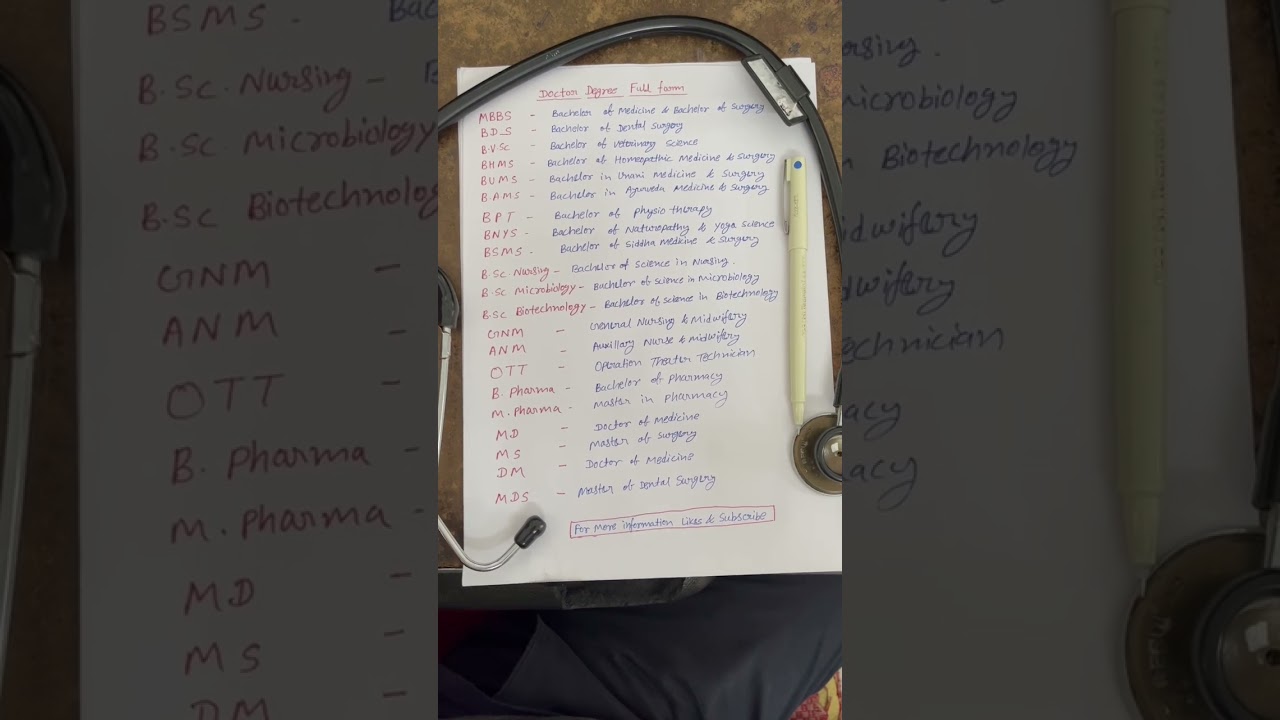 Doctor Degree Full form
MBBS - Bachelor of Medicine & Bachelor of Surgery
BDS - Bachelor of Dental Surgery
B.V.Sc - Bachelor of Veterinary Science
BHMS - Bachelor of Homeopathic Medicine & Surgery
BUMS - Bachelor in Unani Medicine & Surgery
B.AMS - Bachelor in Ayurveda Medicine & Surgery
BPT - Bachelor of Physio therapy
BNYS - Bachelor of Naturopathy & Yoga Science
BSMS - Bachelor of Siddha Medicine & Surgery
B.Sc. Nursing - Bachelor of Science in Nursing.
B.Sc Microbiology - Bachelor of Science in Microbiology
B.Sc Biotechnology - Bachelor of Science in Biotechnology
GNM - General Nursing & Midwifery
ANM - Auxillary Nurse & Midwifery
OTT - Operation Theater Technician
B. Pharma - Bachelor of Pharmacy
M. Pharma - Master in Pharmacy
MD - Doctor of Medicine
MS - Master of Surgery
DM - Doctor of Medicine
MDS - Master of Dental Surgery
For More information Likes & Subscribe